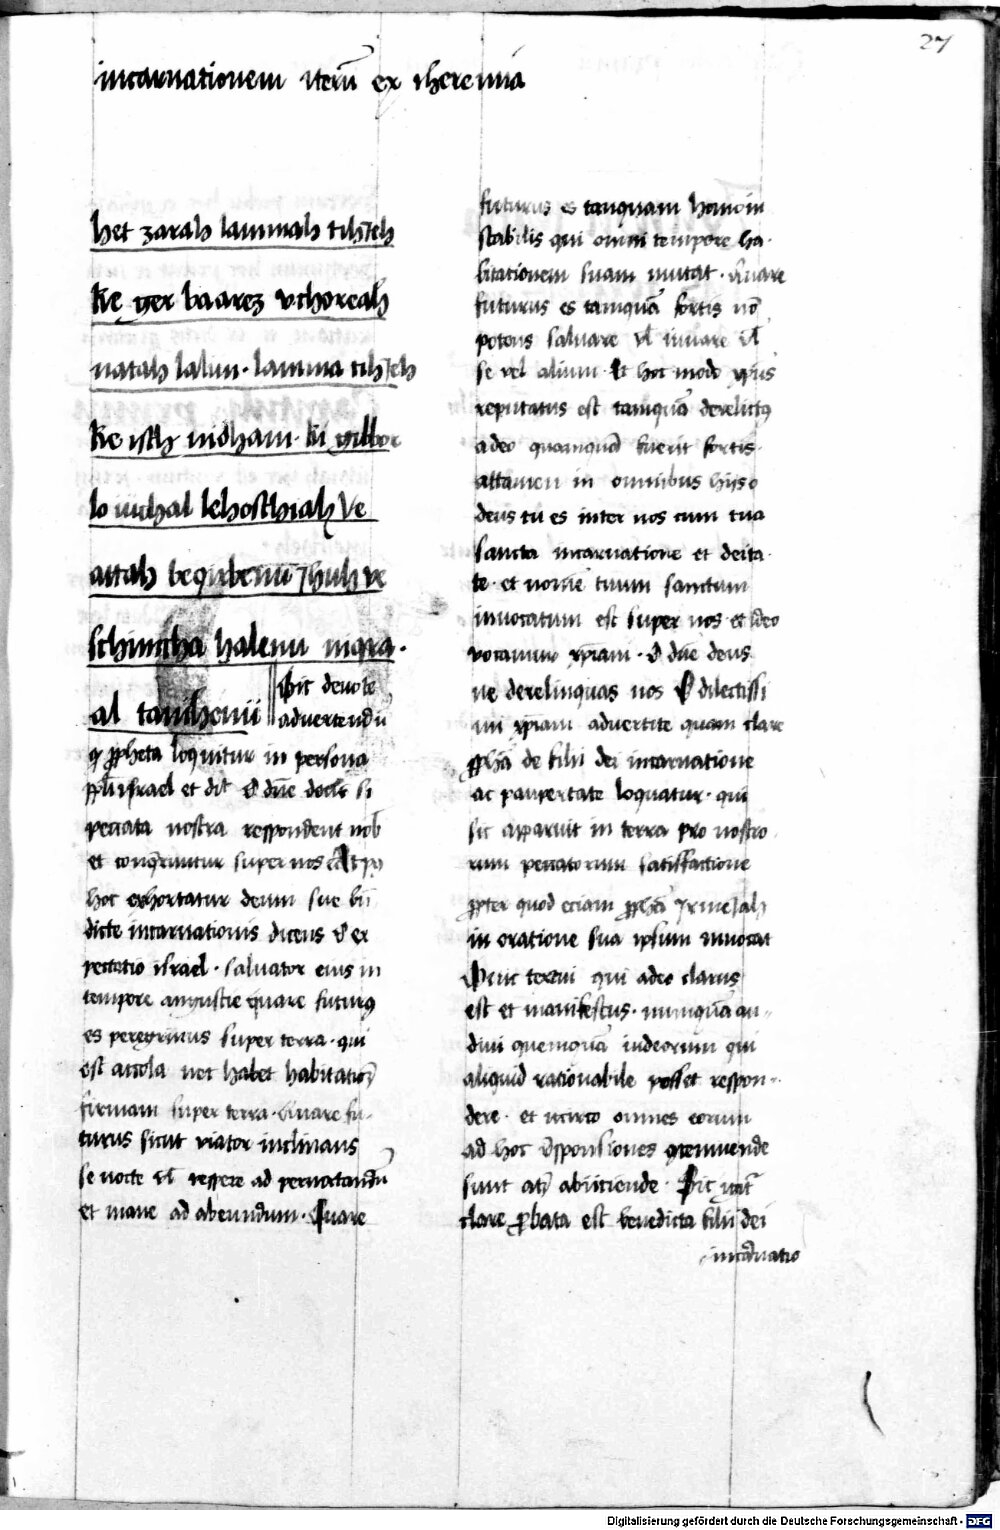 27
incarnationem iterū ex iheremia
het zarah lammah tihieh
ke ger baarez vthoreah
natah lalun · lamma tihieh
ke isch nidham · ki gibbor
lo iuchal lehoschiah Ve
attah beqirbenu ihuh ve
schimcha halenu niqra ·
al tanihenu
Hic deuote
advertendū
q ꝓpheta loquitur in persona
ppli israel et dit O dn̄e deus si
peccata nostra respondent nob
et super nos
hoc exhortatur deum sue bn̄
dicte incarnationis dicens O ex
pectatio israel · saluator eius in
tempore angustie quare futurꝯ
es peregrinus super terra · qui
est accola nec habet habitationē
firmam super terra · Quare fu-
turus sicut viator inclinans
se nocte vl vespere ad pernoctandū
et mane ad abeundum · Quare
futurus es tanquam homo in
stabilis qui omni tempore ha-
bitationem suam mutat · Quare
futurus es tanquā fortis nō
potens saluare vl iuuare vl
se vel alium · Et hoc modo xp̄us
reputatus est tanquā derelictꝯ
adeo quamquā fuerit fortis ·
attamen in omnibus hijs o
deus tu es inter nos cum tua
sancta incarnatione et deita-
te · et nomē tuum sanctum
inuocatum est super nos et ideo
vocamur xp̄iani · O dn̄e deus
ne derelinquas nos O dilectissi
mi xp̄iani advertite quam clare
ꝓph̄a de filii dei incarnatione
ac paupertate loquatur · qui
sic apparuit in terra pro nostro
rum peccatorum satisfactione
ꝓpter quod eciam ꝓph̄a irmeiah
in oratione sua ipsum inuocat
Huic textui qui adeo clarus
est et manifestus · numquā au-
diui quemquā iudeorum qui
aliquid rationabile posset respon-
dere · et iccirco omnes eorum
ad hoc responsiones contemnende
sunt atqꝫ abiiciende · Sic
clare ꝓbata est benedicta filii dei
incarnatio
Digitalisierung gefördert durch die Deutsche Forschungsgemeinschaft - DFG